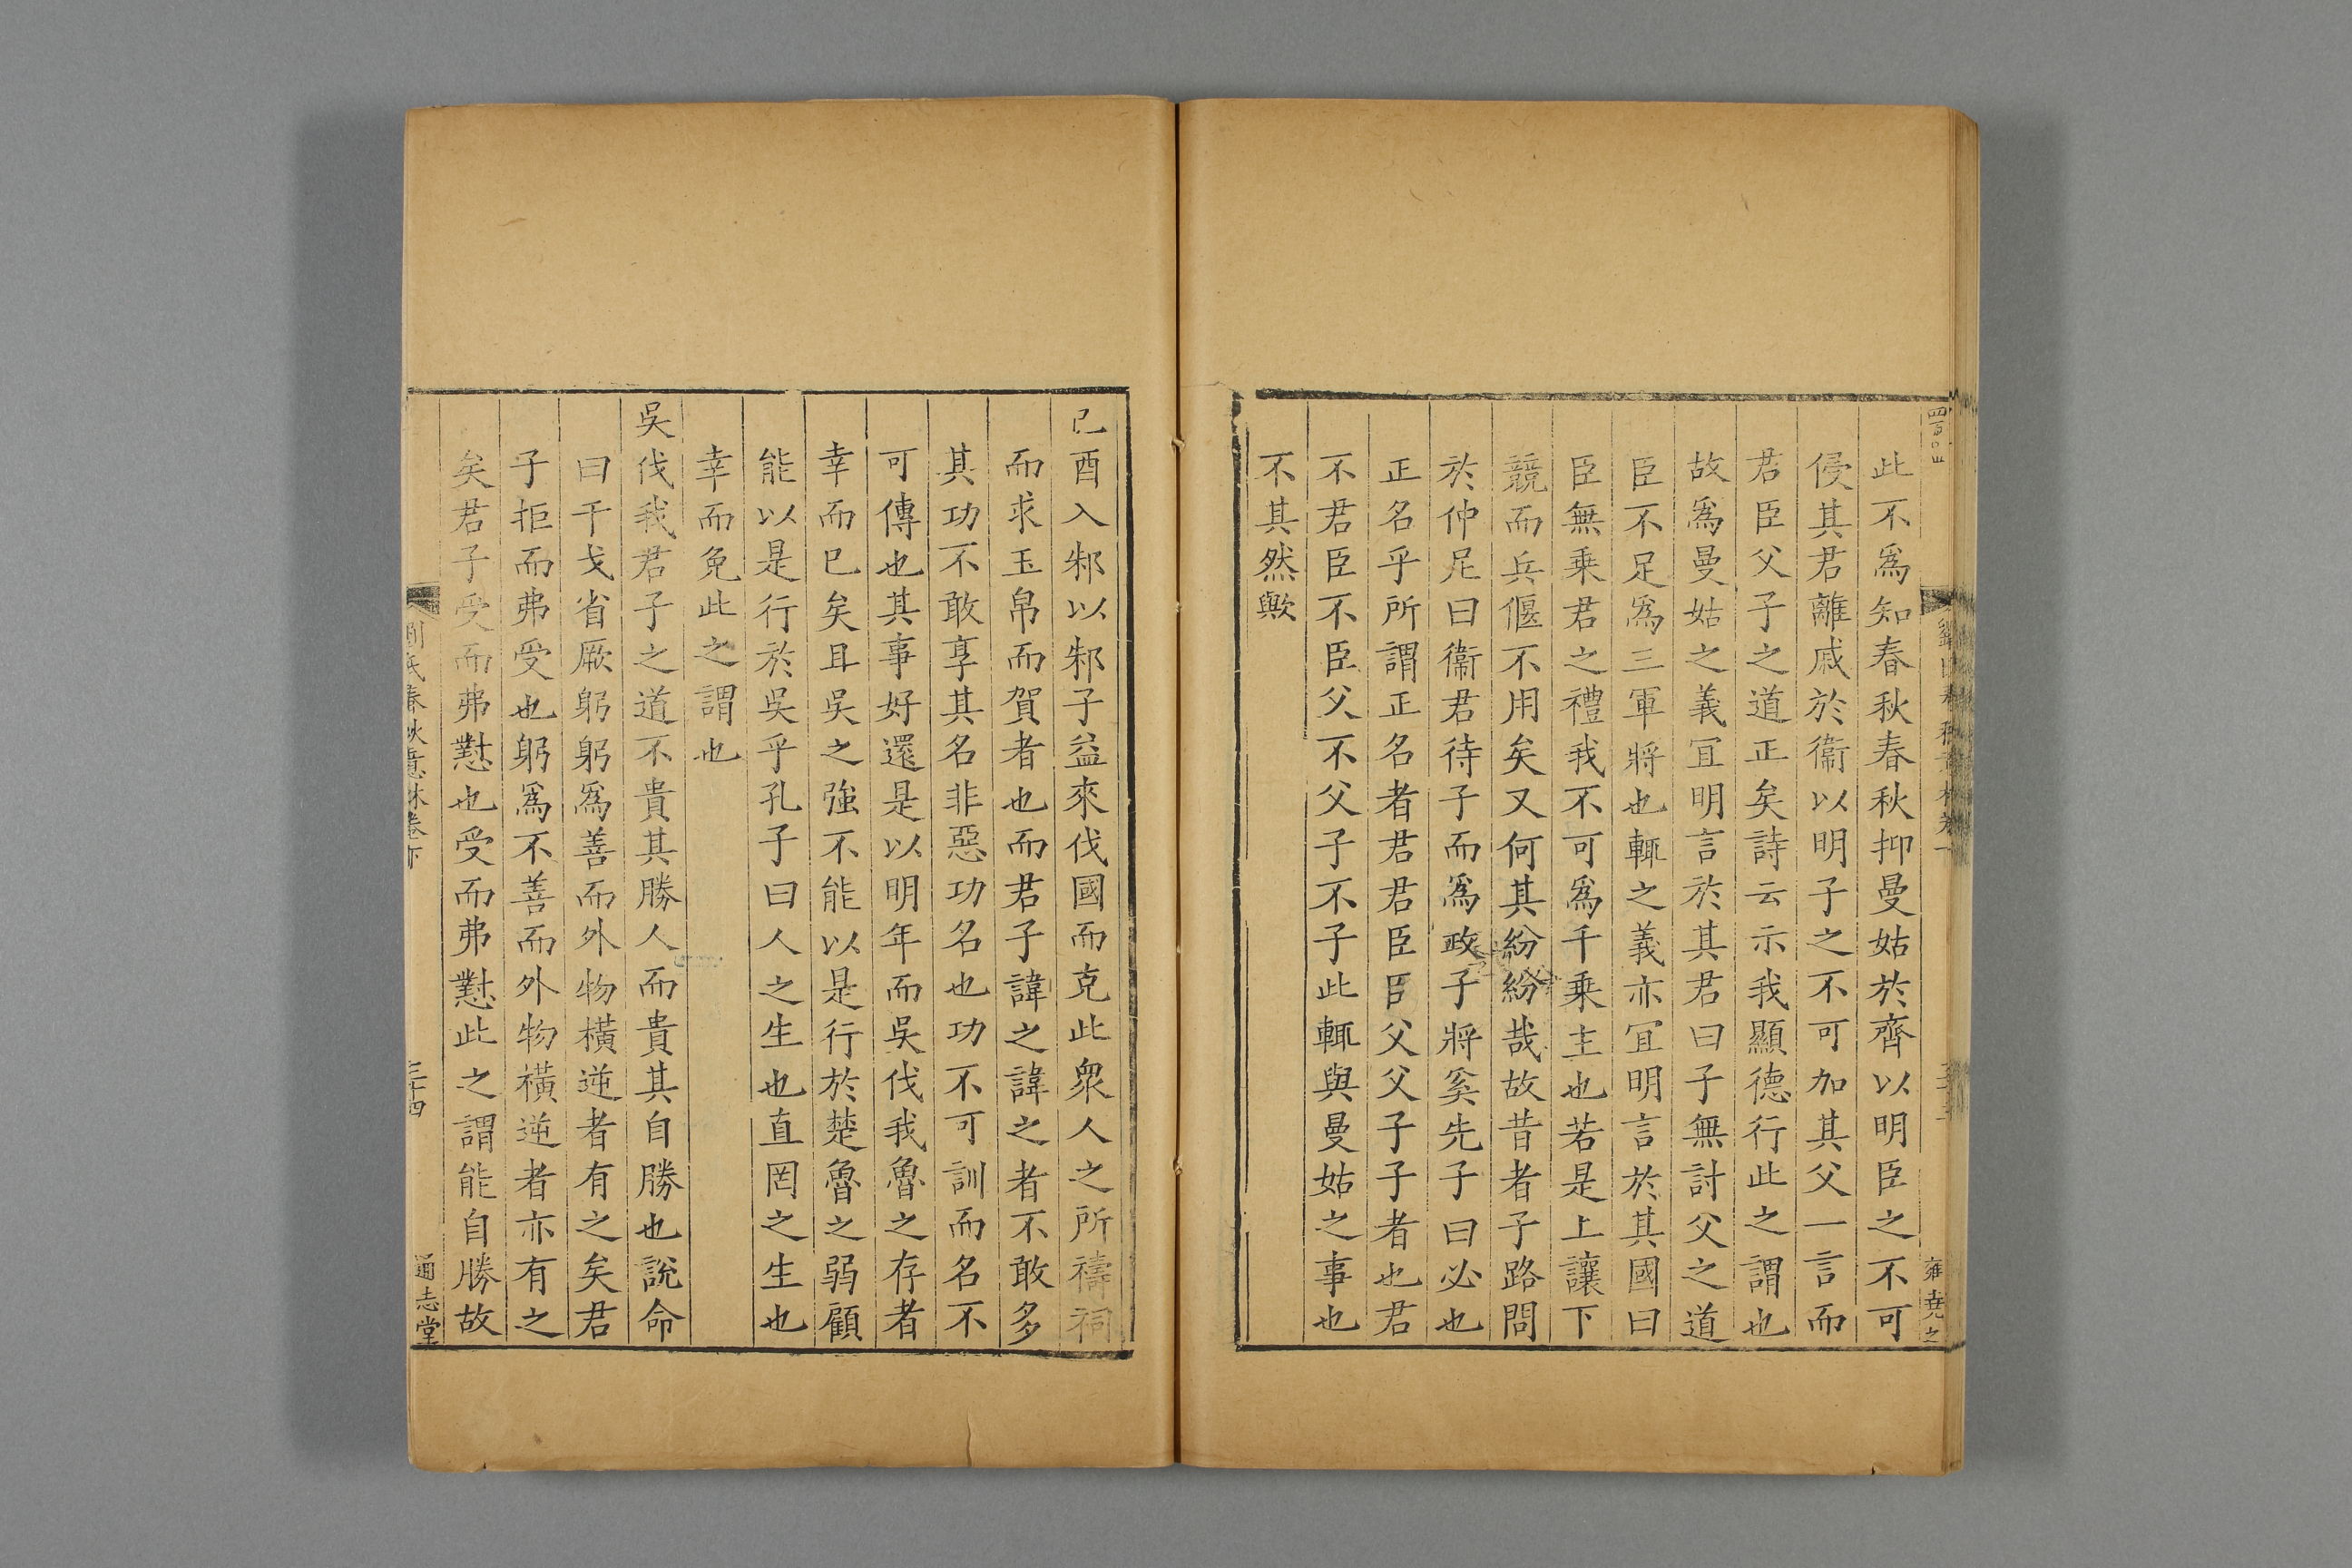 此不爲知春秋春秋抑曼姑於齊以明臣之不可
侵其君離戚於衞以明子之不可加其父一言而
君臣父子之道正矣詩云示我顯德行此之謂也
故爲曼姑之義宜明言於其君曰子無討父之道
臣不足爲三軍將也輒之義亦宜明言於其國曰
臣無乗君之禮我不可爲千乗主也若是上讓下
競而兵偃不用矣又何其紛紛哉故昔者子路問
於仲尼曰衞君待子而爲政子將奚先子曰必也
正名乎所謂正名者君君臣臣父父子子者也君
不君臣不臣父不父子不子此輒與曼姑之事也
不其然歟
雍堯之
己酉入邾以邾子益來伐國而克此衆人之所禱祠
而求玉帛而賀者也而君子諱之諱之者不敢多
其功不敢享其名非惡功名也功不可訓而名不
可傳也其事好還是以明年而吳伐我魯之存者
幸而已矣且吳之強不能以是行於楚魯之弱顧
能以是行於吳乎孔子曰人之生也直罔之生也
幸而免此之謂也
吳伐我君子之道不貴其勝人而貴其自勝也說命
曰干戈省厥躬躬爲善而外物橫逆者有之矣君
子拒而弗受也躬爲不善而外物橫逆者亦有之
矣君子受而弗懟也受而弗懟此之謂能自勝故
劉氏春秋意林卷下
三十四
通志堂